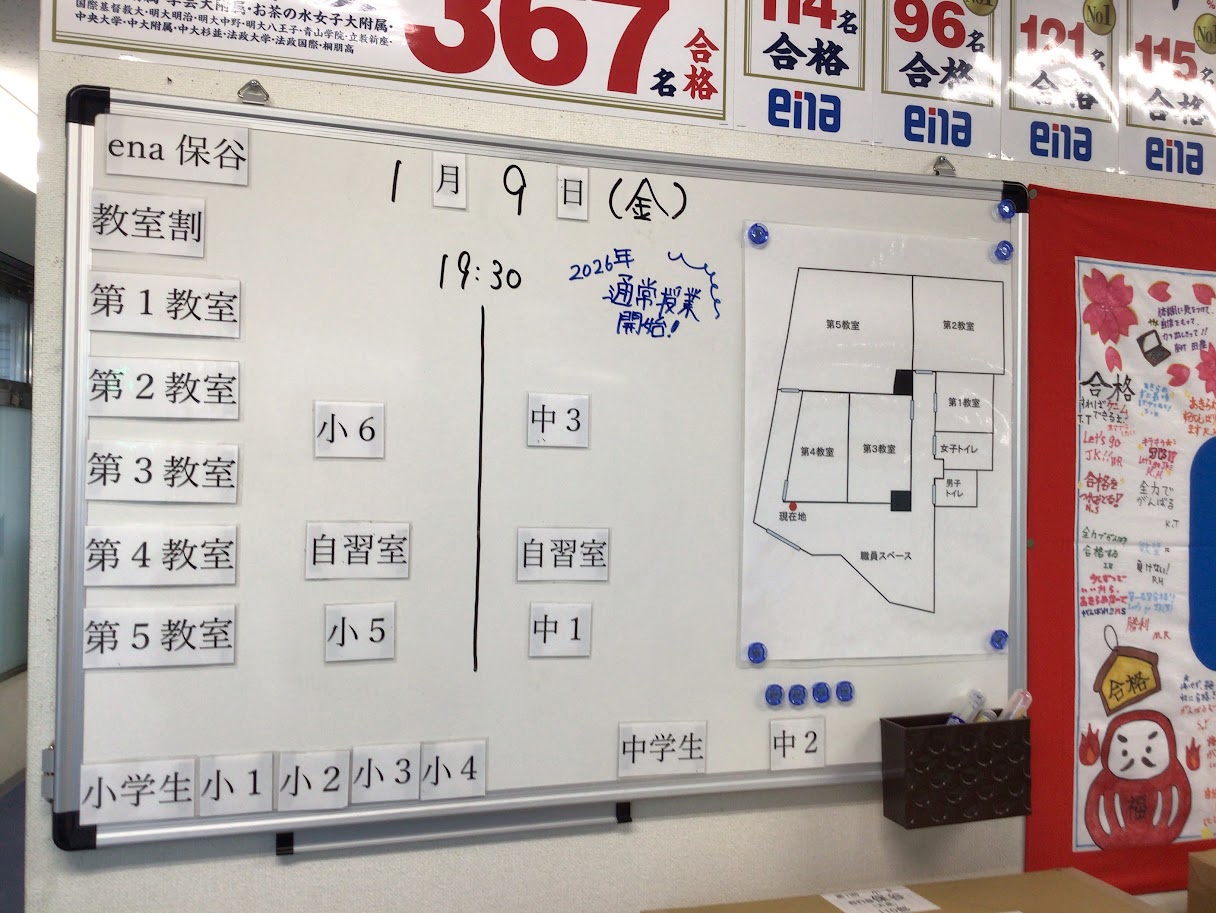 国際基督教大・明大明治・明大中野・明大八王子・青山学院・立教新座・
中央大学・中大附属・中大杉並・法政大学・法政国際・桐朋高
367名
合格
114名
合格
ena
96名
合格
ena
No1
121名
合格
ena
No1
115名
合格
ena
ena 保谷
1月9日(金)
教室割
19:30
2026年
通常授業
開始!
第1教室
第2教室
小6
中3
第3教室
第4教室
自習室
自習室
第5教室
小5
中1
小学生
小1
小2
小3
小4
中学生
中2
第5教室
第2教室
第1教室
第4教室
第3教室
女子トイレ
男子
トイレ
現在地
職員スペース
合格
Let's go
JK!!
合格を
全力で
がんばる
K.T
全力で
合格する
負けない!
RH
勝利
MR
合格
福
保谷